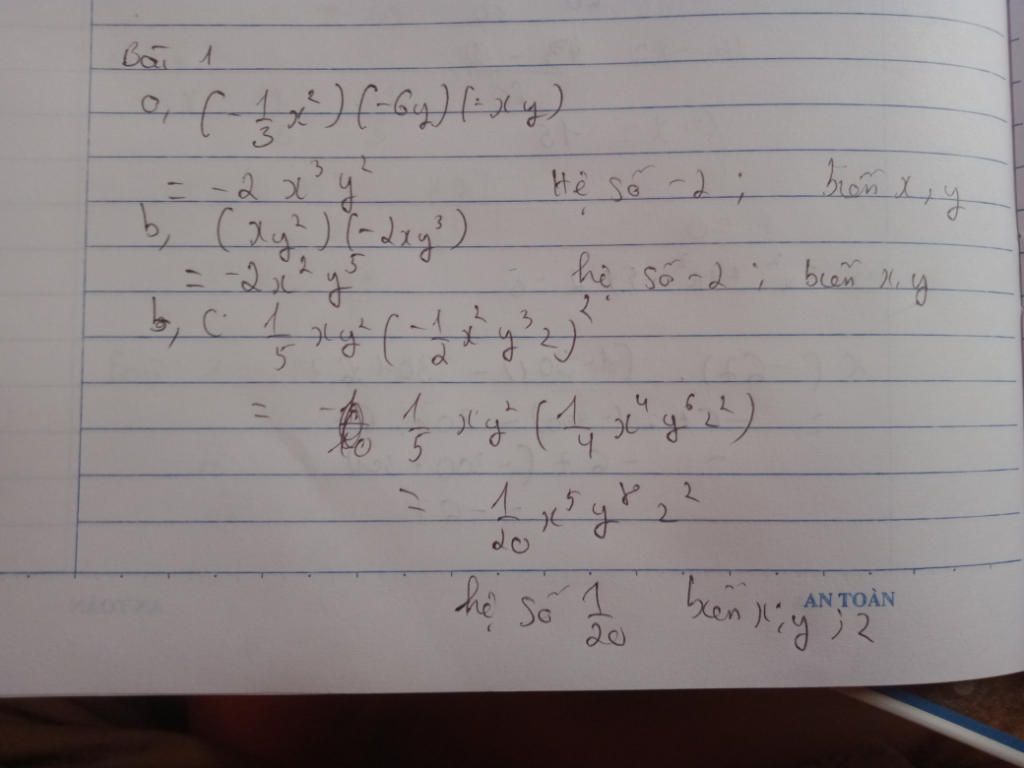 Bài 1
a, (-1/3 x²) (-6y) (-xy)
= -2 x³ y² Hệ số -2 ; biến x, y
b, (xy²) (-2xy³)
= -2x² y⁵ hệ số -2 ; biến x, y
c. 1/5 xy² (-1/2 x² y³ z)²
= 1/5 xy² (1/4 x⁴ y⁶ z²)
= 1/20 x⁵ y⁸ z²
AN TOÀN
hệ số 1/20 biến x; y; z